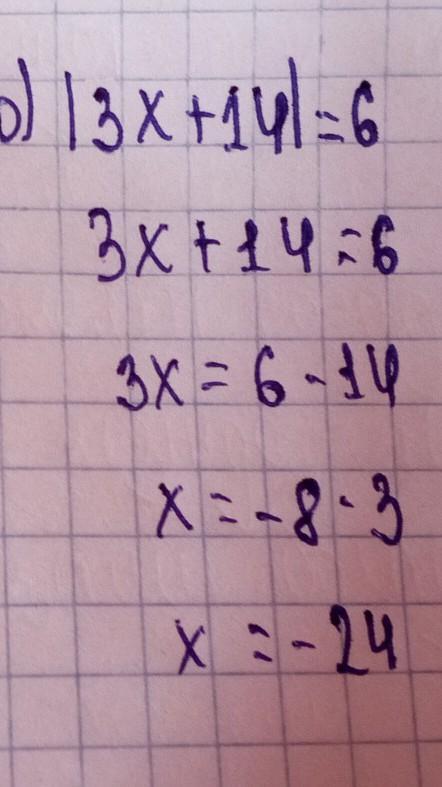 о) |3x+14|=6
3x+14=6
3x=6-14
x=-8·3
x=-24